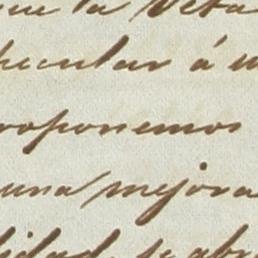 que la veta
pecular á u
roponemos
una mejora
lidad, se abr